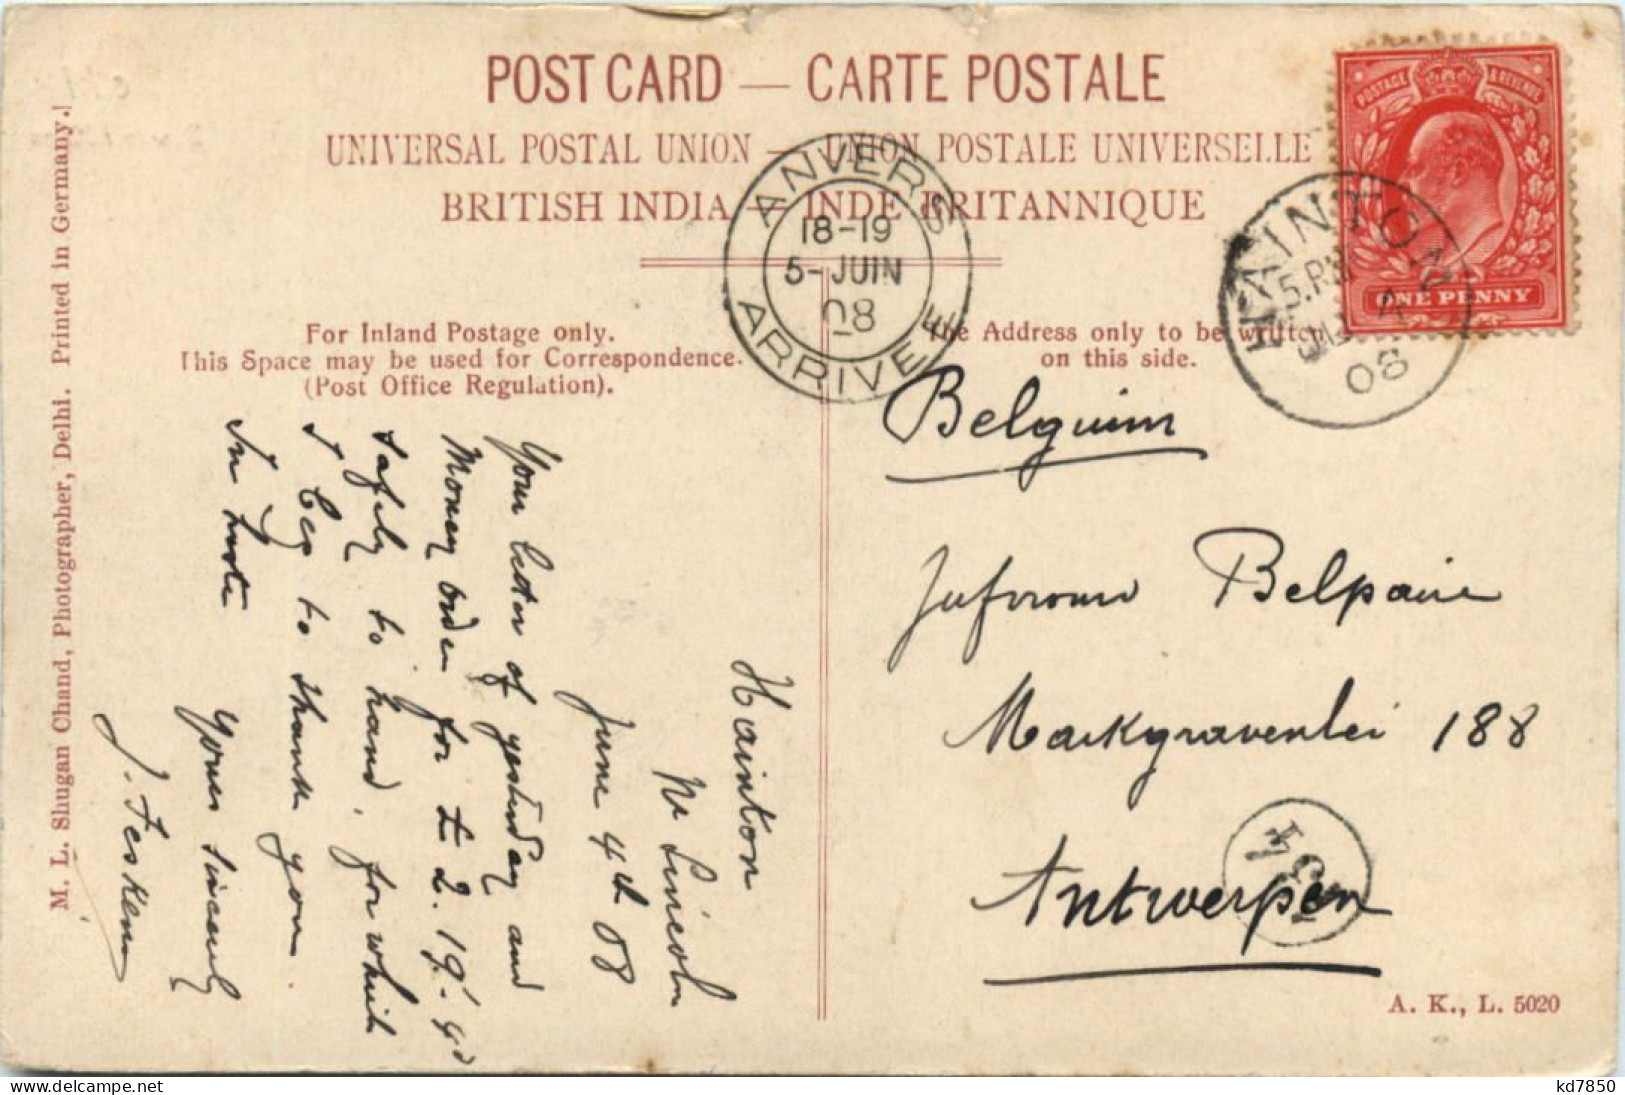 POST CARD — CARTE POSTALE
UNIVERSAL POSTAL UNION — UNION POSTALE UNIVERSELLE
BRITISH INDIA — INDE BRITANNIQUE
For Inland Postage only.
This Space may be used for Correspondence.
(Post Office Regulation).
The Address only to be written
on this side.
POSTAGE & REVENUE
ONE PENNY
ANVERS
18-19
5-JUIN
08
ARRIVÉE
HAINTON
5.PM
08
M. L. Shugan Chand, Photographer, Delhi. Printed in Germany.]
Hainton
Nr Lincoln
June 4th 08
Your letter of yesterday and
Money order for £ 2.19.4d
safely to hand, for which
I beg to thank you.
In haste
Yours sincerely
Belgium
Jufvrouw Belpaire
Markgravenlei 188
Antwerpen
A. K., L. 5020
kd7850